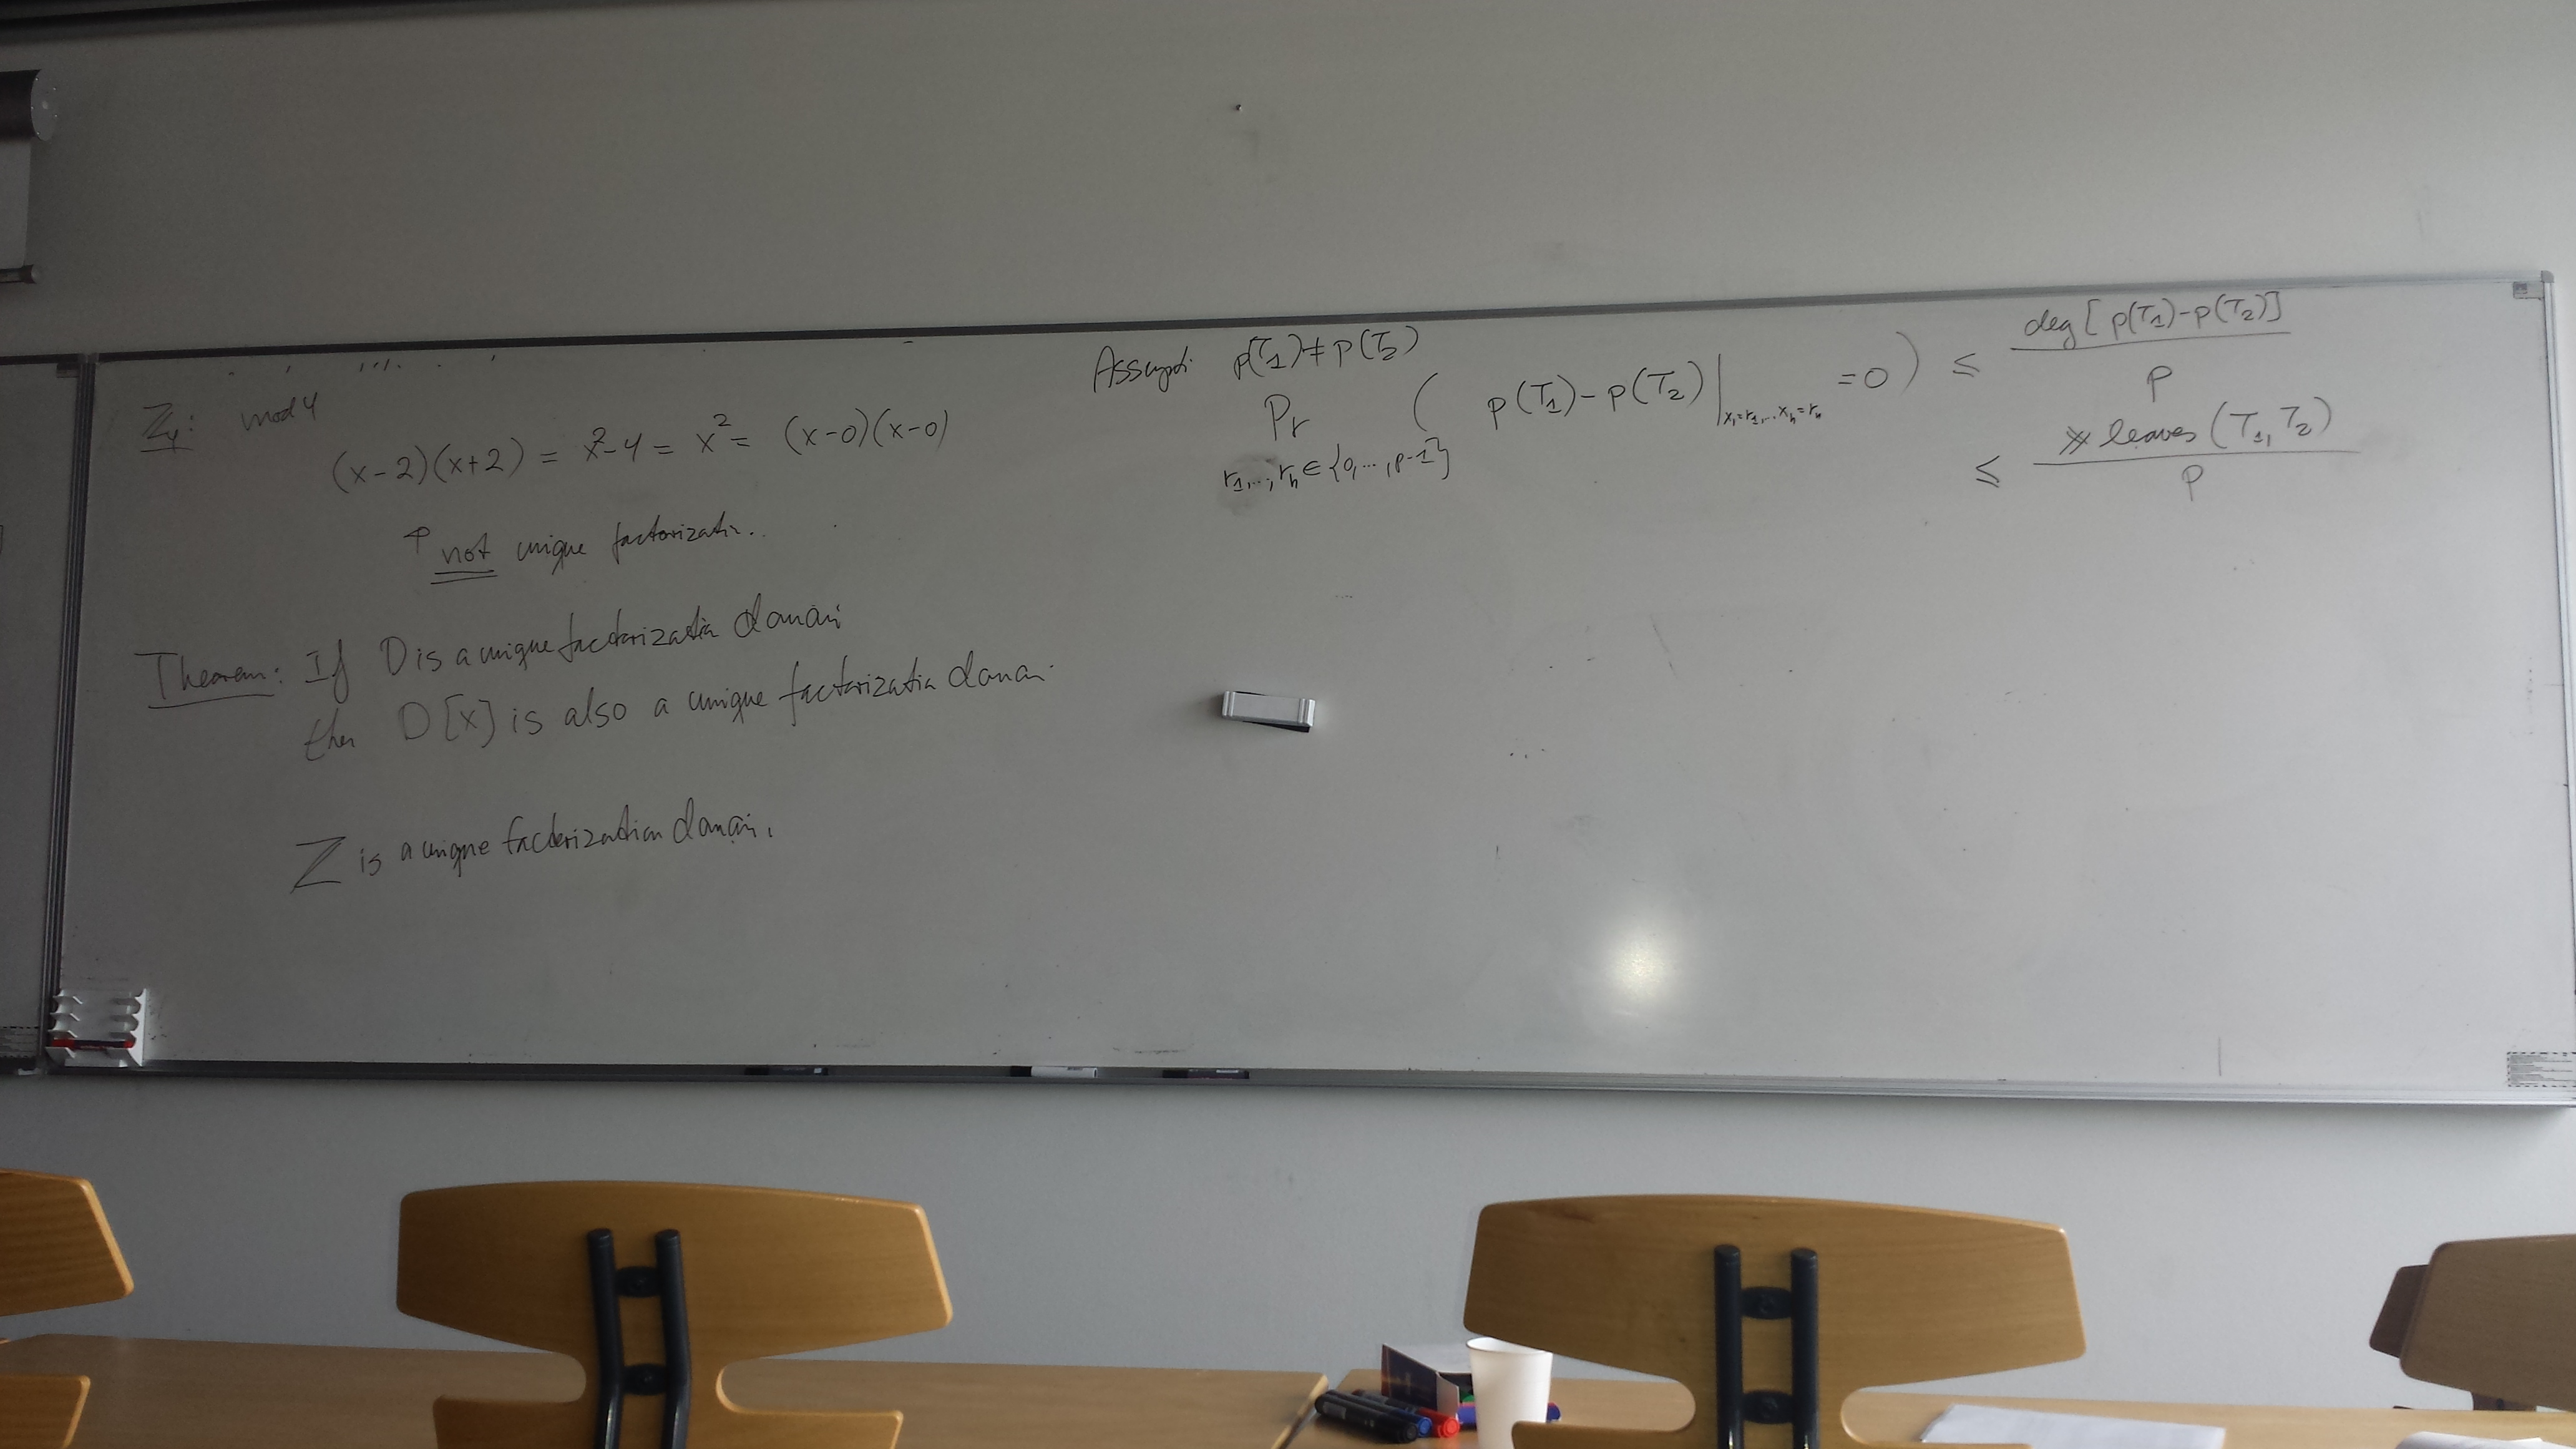 Z₄: mod 4
(x-2)(x+2) = x²-4 = x² = (x-0)(x-0)
↑ not unique factorizatin.
Theorem: If D is a unique factorization domain
then D[x] is also a unique factorization domain.
Z is a unique factorization domain.
p(T₁) ≠ p(T₂)
Pr ( p(T₁) - p(T₂) |x₁=r₁,...,xₕ=rₕ = 0 ) ≤ deg[p(T₁)-p(T₂)] / p
r₁,...,rₕ ∈ {0,...,p-1}
≤ # leaves (T₁, T₂) / p